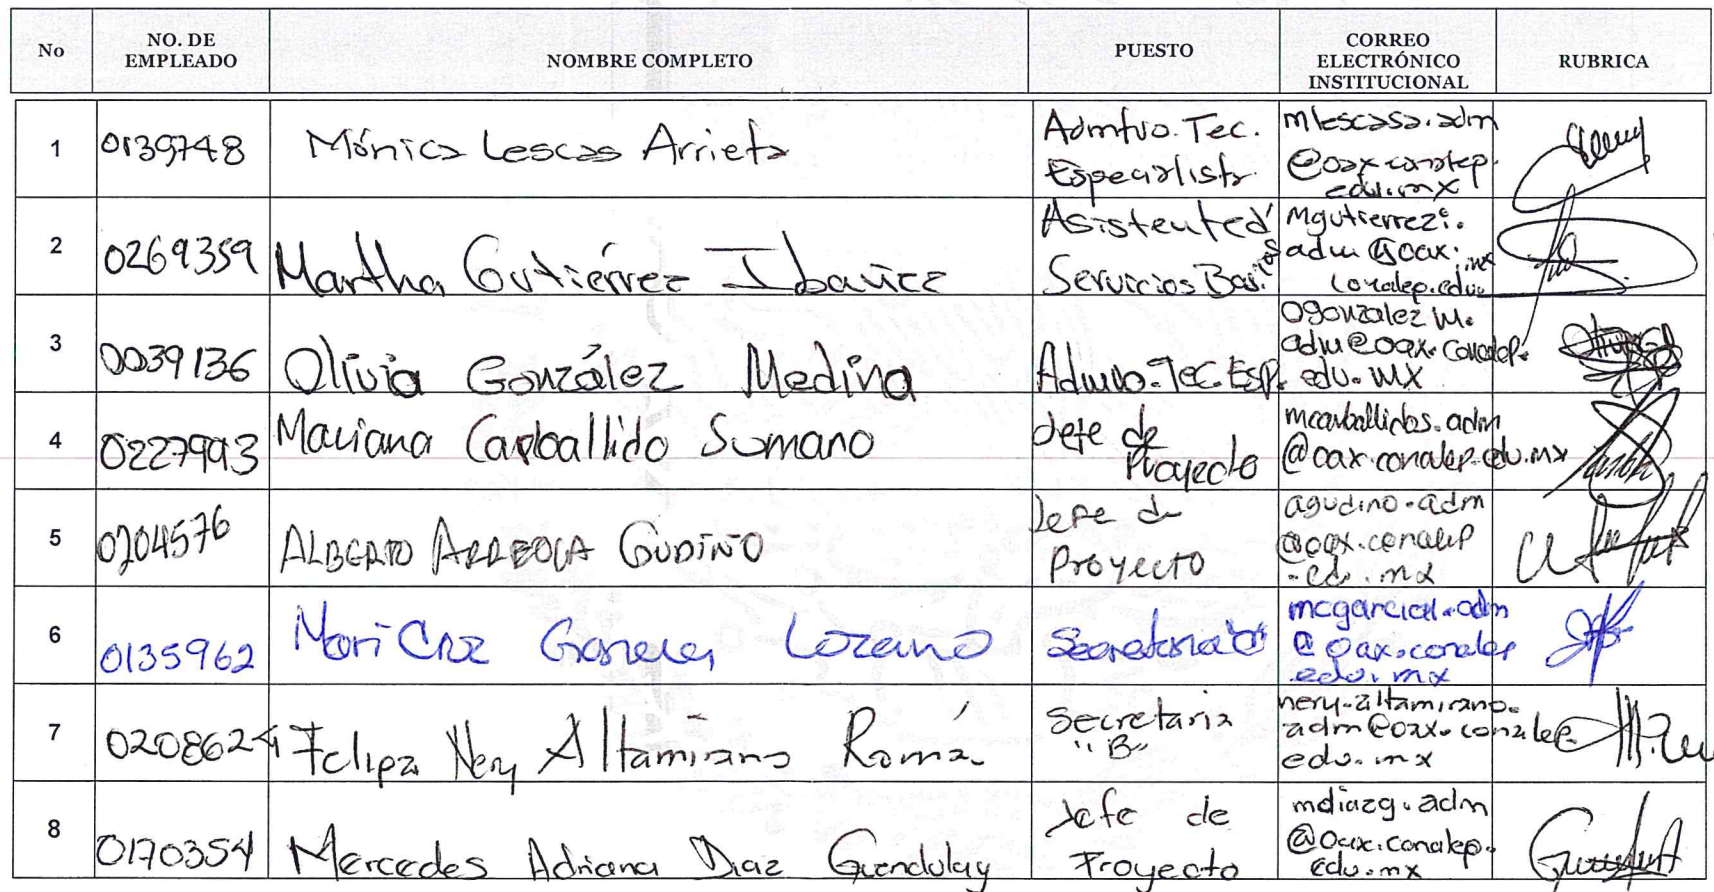 No NO. DE EMPLEADO NOMBRE COMPLETO PUESTO CORREO ELECTRÓNICO INSTITUCIONAL RUBRICA
1 0139748 Mónica Lescas Arrieta Admtvo. Tec. Especialista mlescasa.adm @oax.conalep. edu.mx
2 0269359 Martha Gutiérrez Ibañez Asistente d Servicios Basicos Mgutierrezi. adm @oax. conalep.edu. mx
3 0039136 Olivia González Medina Admvo. Tec. Esp. ogonzalezm. adm@oax.conalep. edu.mx
4 0227993 Mariana Carballido Sumano Jefe de Proyecto mcarballidos.adm @oax.conalep.edu.mx
5 0204576 ALBERTO ARREOLA GUDIÑO Jefe de Proyecto agudino.adm @oax.conalep .edu.mx
6 0135962 Mari Cruz Garcia Lozano Secretaria mcgarcial.adm @oax.conalep .edu.mx
7 0208624 Felipa Nery Altamirano Romá Secretaria "B" nery.altamirano. adm@oax.conalep. edu.mx
8 0170354 Mercedes Adriana Diaz Guendulay Jefe de Proyecto mdiazg.adm @oax.conalep. edu.mx